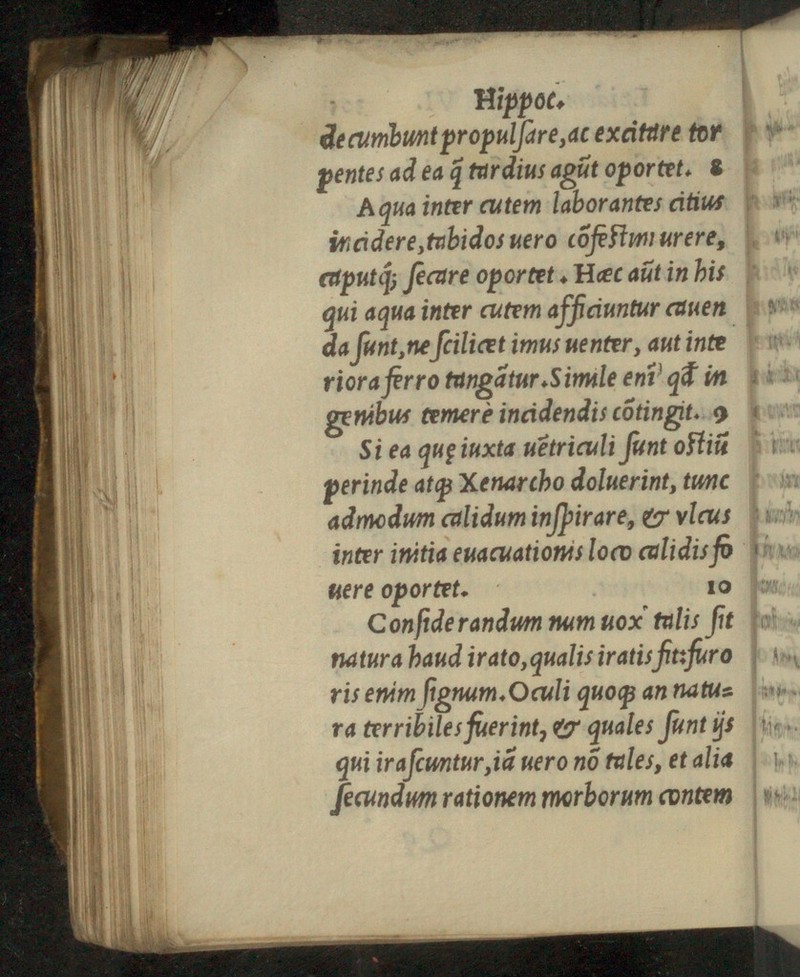 Hippoc.
decumbunt propulſare, ac excitare tor
pentes ad ea q̃ tardius agũt oportet. 8
Aqua inter cutem laborantes citius
incidere, tabidos uero cõfeſtim urere,
caputq; ſecare oportet. Hæc aũt in his
qui aqua inter cutem afficiuntur cauen
da ſunt, ne ſcilicet imus uenter, aut inte
riora ferro tangãtur. Simile eni' qđ in
genibus temerè incidendis cõtingit. 9
Si ea quę iuxta uẽtriculi ſunt oſtiũ
perinde atq; Xenarcho doluerint, tunc
admodum calidum inſpirare, & vlcus
inter initia euacuationis loco calidis fo
uere oportet. 10
Conſiderandum num uox talis ſit
natura haud irato, qualis iratis fit: furo
ris enim ſignum. Oculi quoq; an natu=
ra terribiles fuerint, & quales ſunt ijs
qui iraſcuntur, iã uero nõ tales, et alia
ſecundum rationem morborum contem